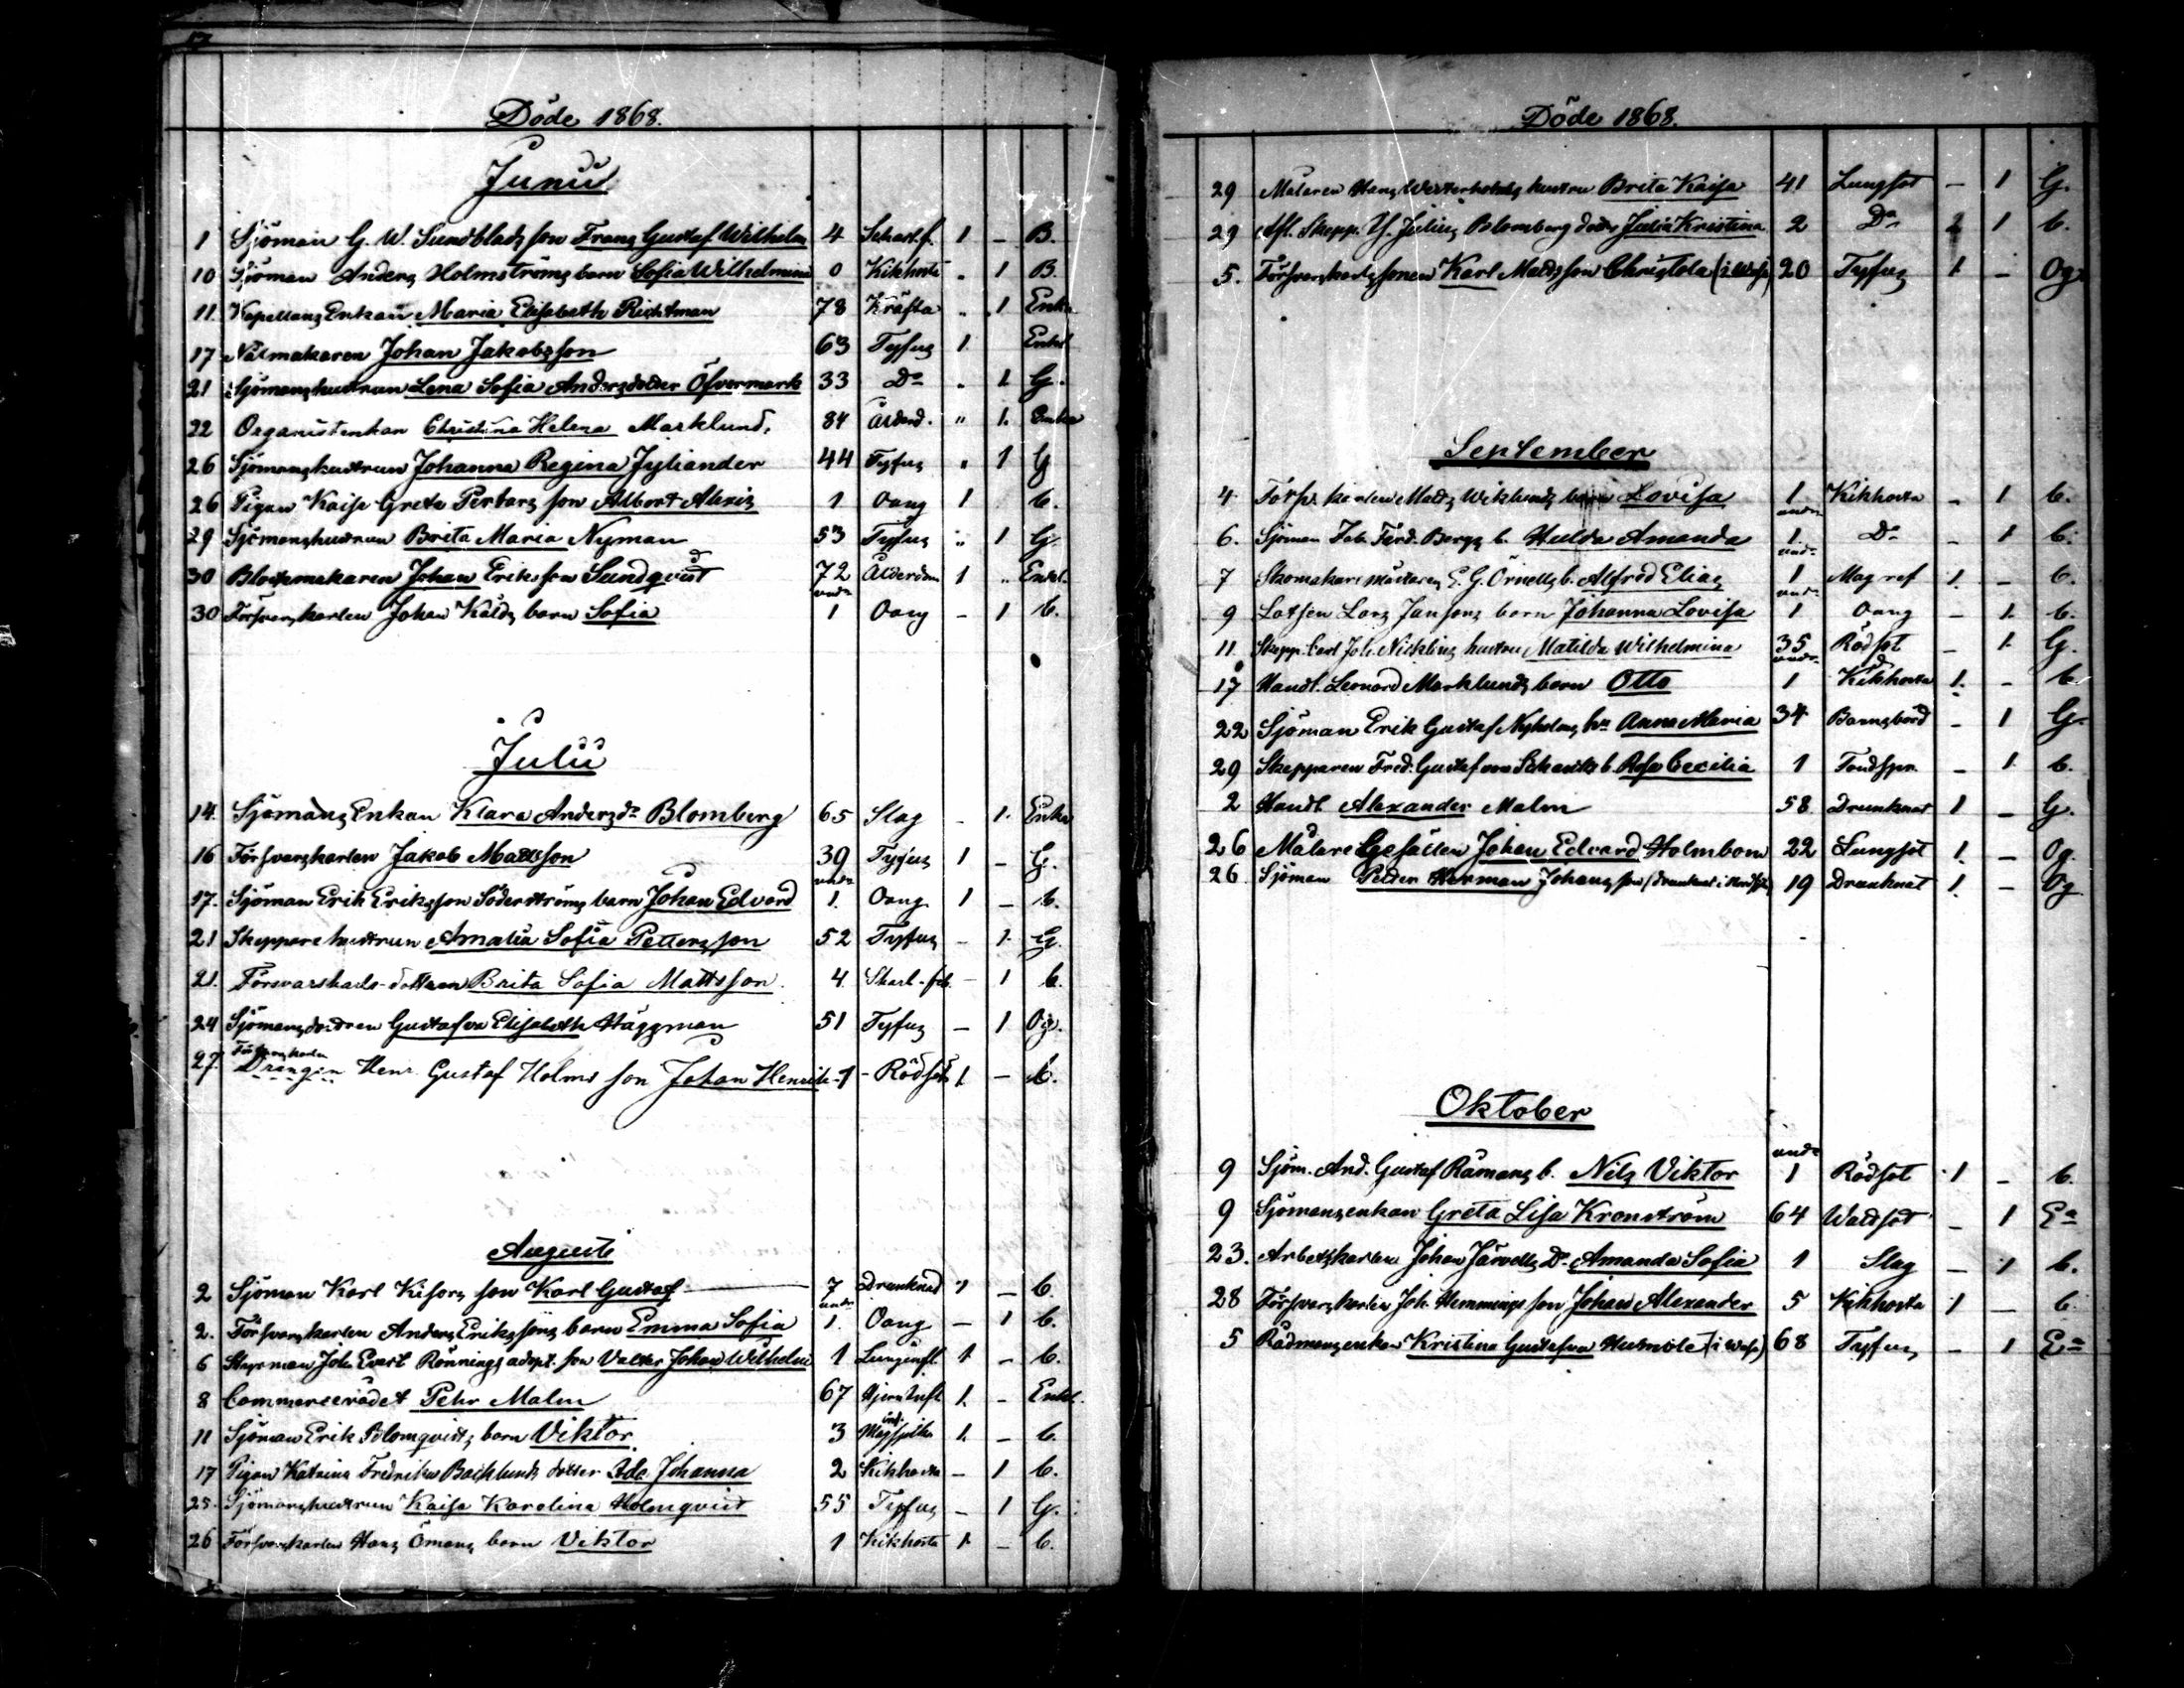 Döde 1868.
Junii
1 Sjöman G. W. Sundblads son Frans Gustaf Wilhelm 4 Scharl.f. 1 – B.
10 Sjöman Anders Holmströms barn Sofia Wilhelmina 0 Kikhosta „ 1 B.
11. Kapellans Enkan Maria Elisabeth Richtman 78 Kräfta „ 1 Enka
17 Nålmakaren Johan Jakobsson 63 Tyfus 1. Enkl.
21 Sjömanshustrun Lena Sofia Andersdotter Öfvermark 33 Do „ 1 G.
22 Organistenkan Christina Helena Marklund, 84 Ålderd. " 1. Enka
26 Sjömanshustrun Johanna Regina Jyliander 44 Tyfus " 1 G
26 Pigan Kaisa Greta Pertars son Albert Alexis 1 Oang 1 b.
29 Sjömanshustrun Brita Maria Nyman 53 Tyfus " 1 G.
30 Blockmakaren Johan Eriksson Sundqvist 72 Ålderdom 1 „ Enkl.
30 Försvarskarlen Johan Källds barn Sofia undr 1 Oang – 1 b.
Julii
14. Sjömans Enkan Klara Andersdr Blomberg 65 Slag – 1. Enka
16 Försvarskarlen Jakob Mattsson 39 Tyfus 1 – G.
17. Sjöman Erik Eriksson Söderströms barn Johan Edvard undr 1. Oang 1 – b.
21 Skeppare hustrun Amalia Sofia Pettersson 52 Tyfus – 1. G.
21. Försvarskarls-dottern Brita Sofia Mattsson. 4. Skarl-feb. – 1 b.
24 Sjömansdottren Gustafva Elisabeth Häggman 51 Tyfus – 1 Og.
27. Försvarskarlen
Drängen Henr. Gustaf Holms son Johan Henrik – 1 – Rödsot 1. – b.
Augusti
2 Sjöman Karl Kisors son Karl Gustaf 7 Drunknad 1 – b.
2. Försvarskarlen Anders Erikssons barn Emma Sofia undr 1. Oang – 1 b.
6 Styrman Joh. Evert Rönnings adopt. son Valter Johan Wilhelm 1 Lunginfl. 1. – b.
8 Commerserådet Pehr Malm 67 Hjerninfl. 1. – Enkl.
11 Sjöman Erik Blomqvists barn Viktor 3 1. – b.
17 Pigan Katrina Fredrika Backlunds dotter Ida Johanna 2 Kikhosta – 1 b.
25. Sjömanshustrun Kaisa Karolina Holmqvist 55 Tyfus – 1 G.
26 Försvarskarlen Hans Ömans barn Viktor 1 Kikhosta 1. – b.
Döde 1868.
29 Målaren Hans Westerholms hustru Brita Kaisa 41 Lungsot – 1 G.
29 Afl. Skepp. Julius Blombergs dotter Julia Kristina 2 Do 1 b.
5. Försvarskarlssonen Karl Mattsson Christola (i Wasa) 20 Tyfus 1. – Og
September
4. Försv. karlen Matts Wiklunds barn Lovisa 1 Kikhosta – 1 b.
6. Sjöman Joh. Ferd. Bergs b. Hulda Amanda undr 1. Do – 1 b.
7 Skomakare mästaren E. G. Örnells b. Alfred Elias undr 1 Mag ref 1. – b.
9 Lotsen Lars Jansons barn Johanna Lovisa undr 1 Oang – 1. b.
11. Skepp. Carl Joh. Nicklins hustru Matilda Wilhelmina 35 Rödsot – 1. G.
17 Handl. Leonard Marklunds barn Otto undr 1 Kikhosta 1. – b
22 Sjöman Erik Gustaf Nyholms hu Anna Maria 34 Barnsbörd – 1 G.
29 Skepparen Fred. Gustaf von Schantz b. Rosa Cecilia 1 Tandspr. – 1 b.
2 Handl. Alexander Malm 58. Drunknat 1 – G.
26 Målare Gesällen Johan Edvard Holmbom 22 Lungsot 1. – Og.
26. Sjöman Petter Herman Johansson 19 Drunknat 1. – Og
Oktober
9 Sjöm. And. Gustaf Råmans b. Nils Viktor undr 1 Rödsot 1 – b.
9 Sjömansenkan Greta Lisa Kronström 64 Wattsot – 1 Ea
23. Arbetskarlen Johan Järvells Dr Amanda Sofia 1 Slag – 1 b.
28 Försvarskarlen Joh. Hemmings son Johan Alexander 5 Kikhosta 1 – b.
5 Rådmansenkan Kristina Gustafva (i Wasa) 68 Tyfus – 1 Ea